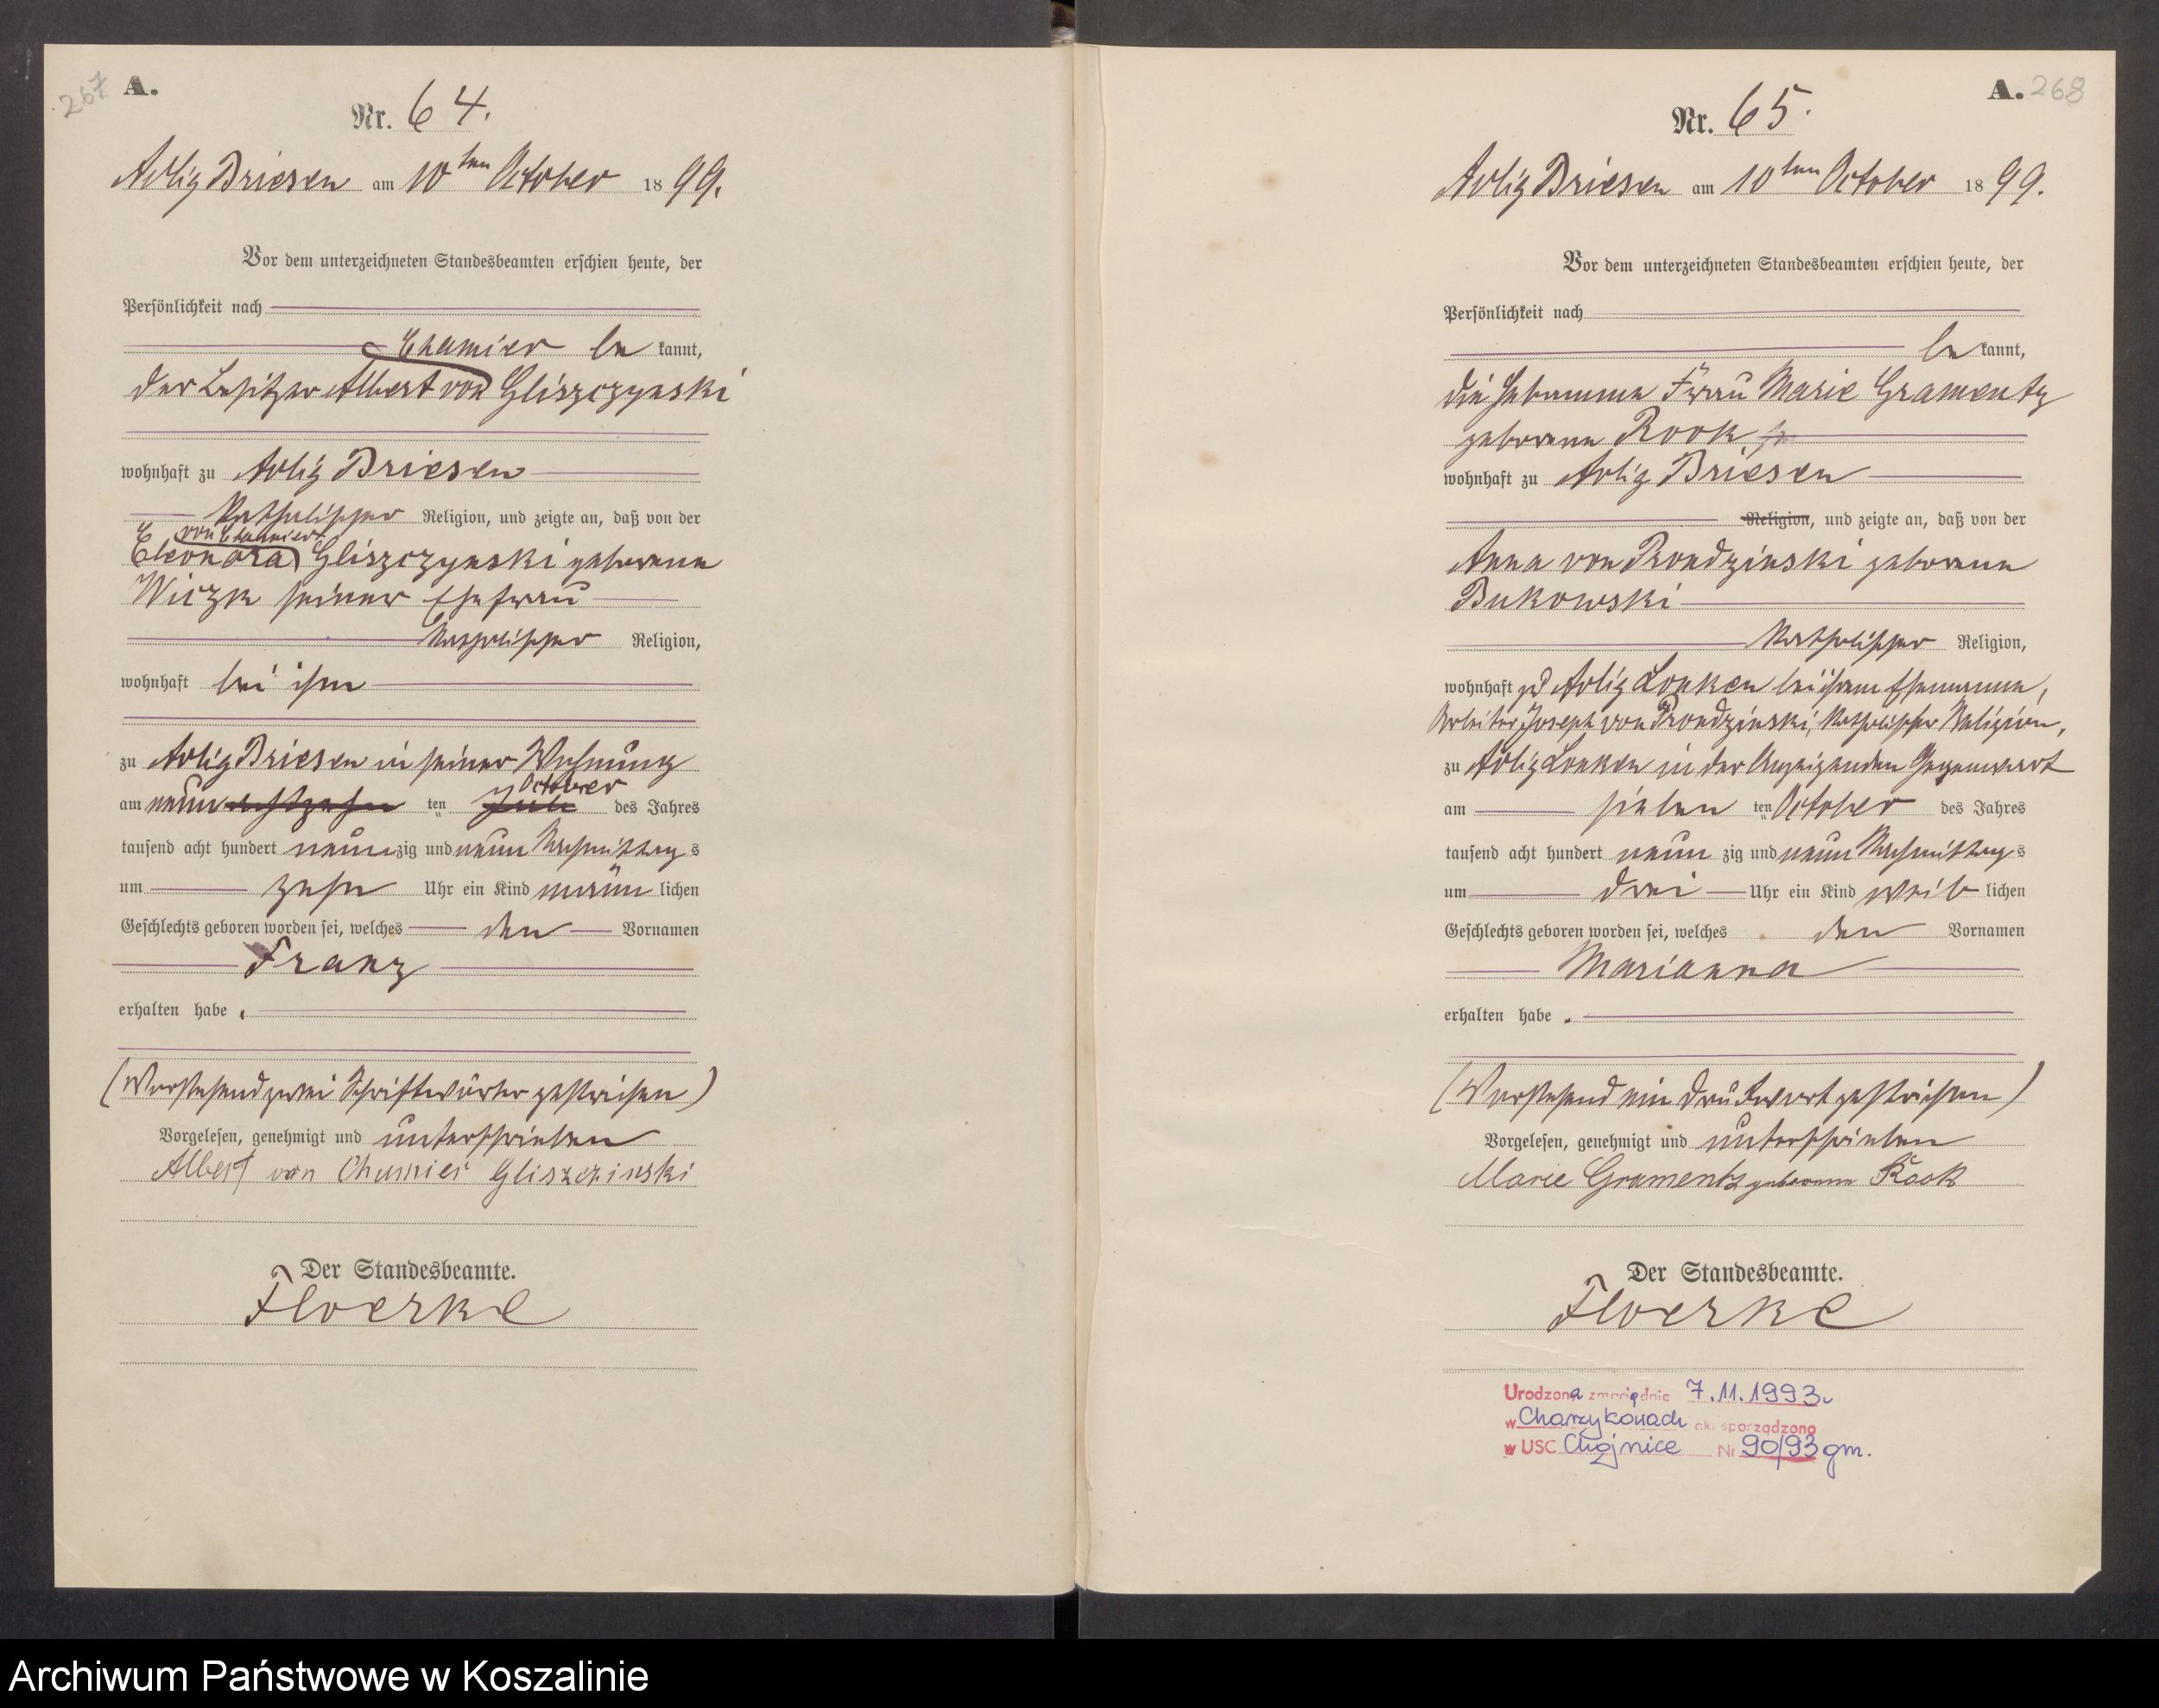 267
A.
Nr. 64.
Adlig Briesen am 10ten October 1899.
Vor dem unterzeichneten Standesbeamten erschien heute, der
Persönlichkeit nach
Chamier be kannt,
der Besitzer Albert von Gliszczynski
wohnhaft zu Adlig Briesen
katholischer Religion, und zeigte an, daß von der
von Chamier
Eleonora Gliszczynski geborene
Wiczk seiner Ehefrau
katholischer Religion,
wohnhaft bei ihm
zu Adlig Briesen in seiner Wohnung
October
am neun achtzehn ten Juli des Jahres
tausend acht hundert neunzig und neun Nachmittags
um zehn Uhr ein Kind männlichen
Geschlechts geboren worden sei, welches den Vornamen
Franz
erhalten habe.
(Vorstehend zwei Schriftwörter gestrichen)
Vorgelesen, genehmigt und unterschrieben
Albert von Chamier Gliszczinski
Der Standesbeamte.
Floerke
A. 268
Nr. 65.
Adlig Briesen am 10ten October 1899.
Vor dem unterzeichneten Standesbeamten erschien heute, der
Persönlichkeit nach
be kannt,
die Hebamme Frau Marie Gramentz
geborene Rook
wohnhaft zu Adlig Briesen
Religion, und zeigte an, daß von der
Anna von Prondzinski geborene
Bukowski
katholischer Religion,
wohnhaft zu Adlig Lonken bei ihrem Ehemanne,
Arbeiter Joseph von Prondzinski, katholischer Religion,
zu Adlig Lonken in der Anzeigenden Gegenwart
am sieben ten October des Jahres
tausend acht hundert neunzig und neun Nachmittags
um drei Uhr ein Kind weiblichen
Geschlechts geboren worden sei, welches den Vornamen
Marianna
erhalten habe.
(Vorstehend ein Druckwort gestrichen)
Vorgelesen, genehmigt und unterschrieben
Marie Gramentz geborene Rook
Der Standesbeamte.
Floerke
Urodzona zmarła dnia 7.11.1993r
w Charzykowach akt sporządzono
w USC Chojnice Nr 90/93 gm.
Archiwum Państwowe w Koszalinie